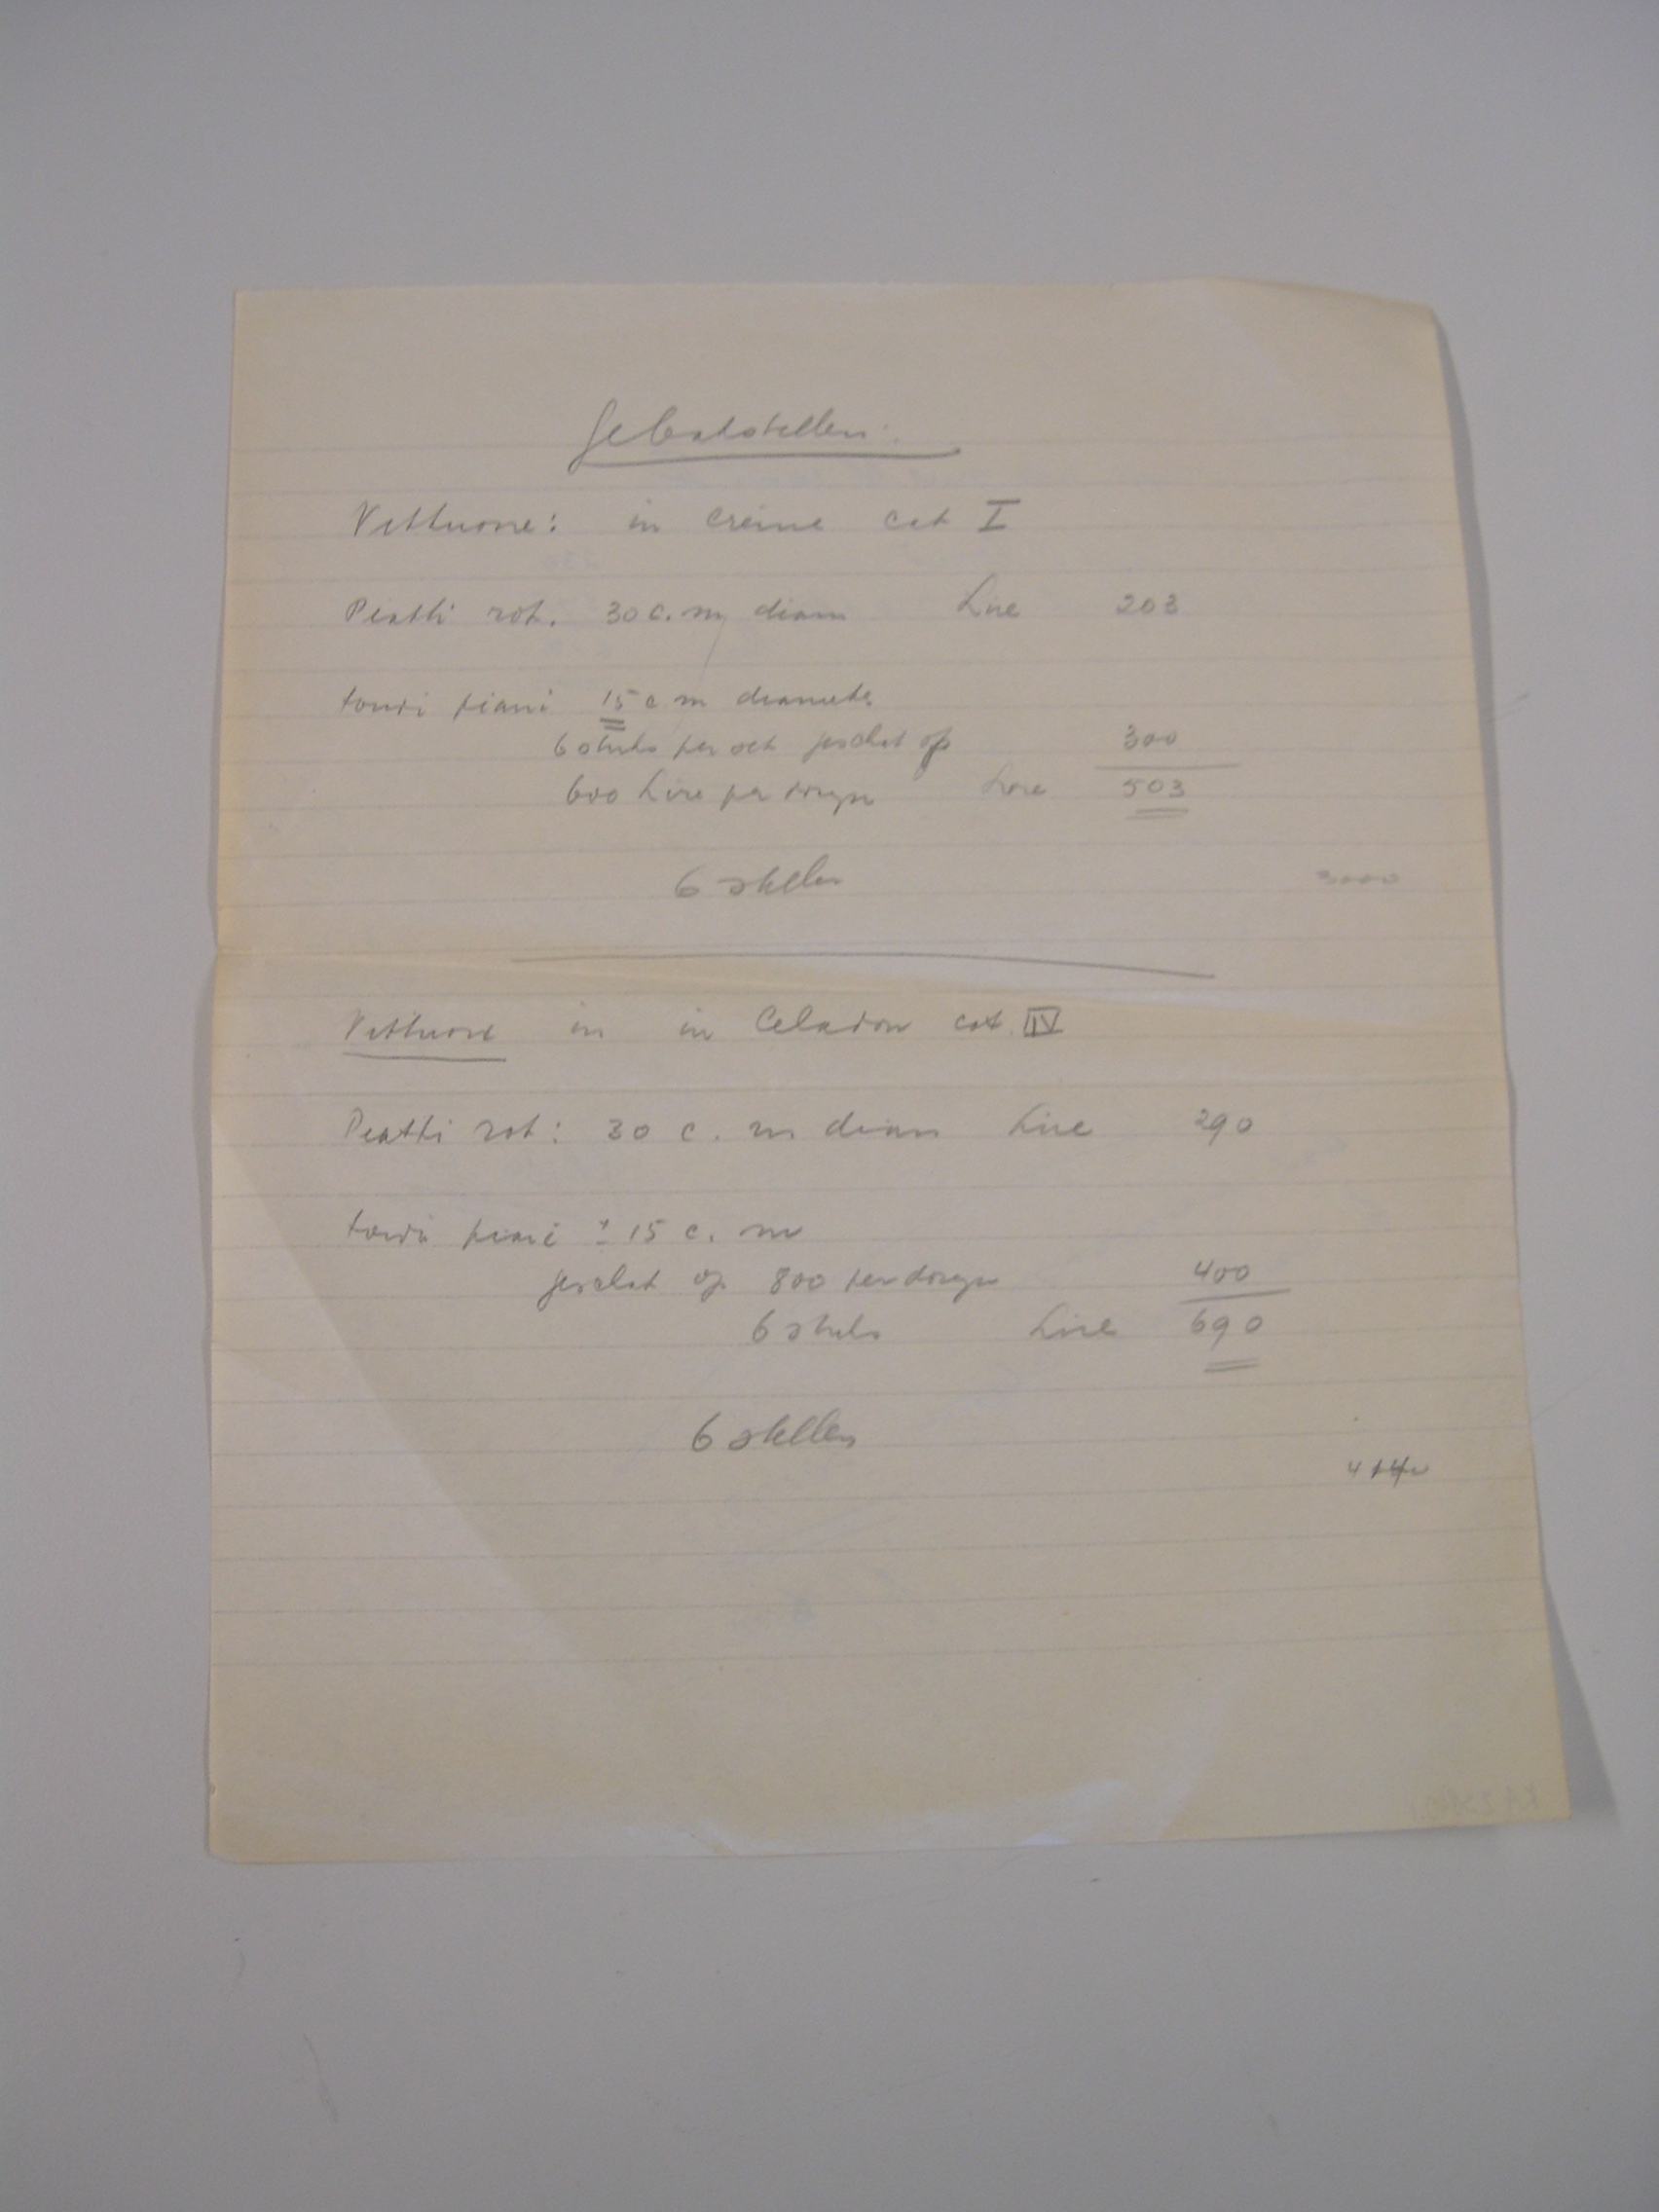 Gebakstellen:
Vittuone: in Crème cat I
Piatti rot. 30 c.m diam Lire 203
tondi piani 15 c m diameter
6 stuks per set geschat op 300
600 Lire per dozijn Lire 503
6 stellen 3000
Vittuone in in Celadon cat. IV
Piatti rot: 30 c. m diam Lire 290
tondi piani ± 15 c. m
geschat op 800 per dozijn 400
6 stuks Lire 690
6 stellen